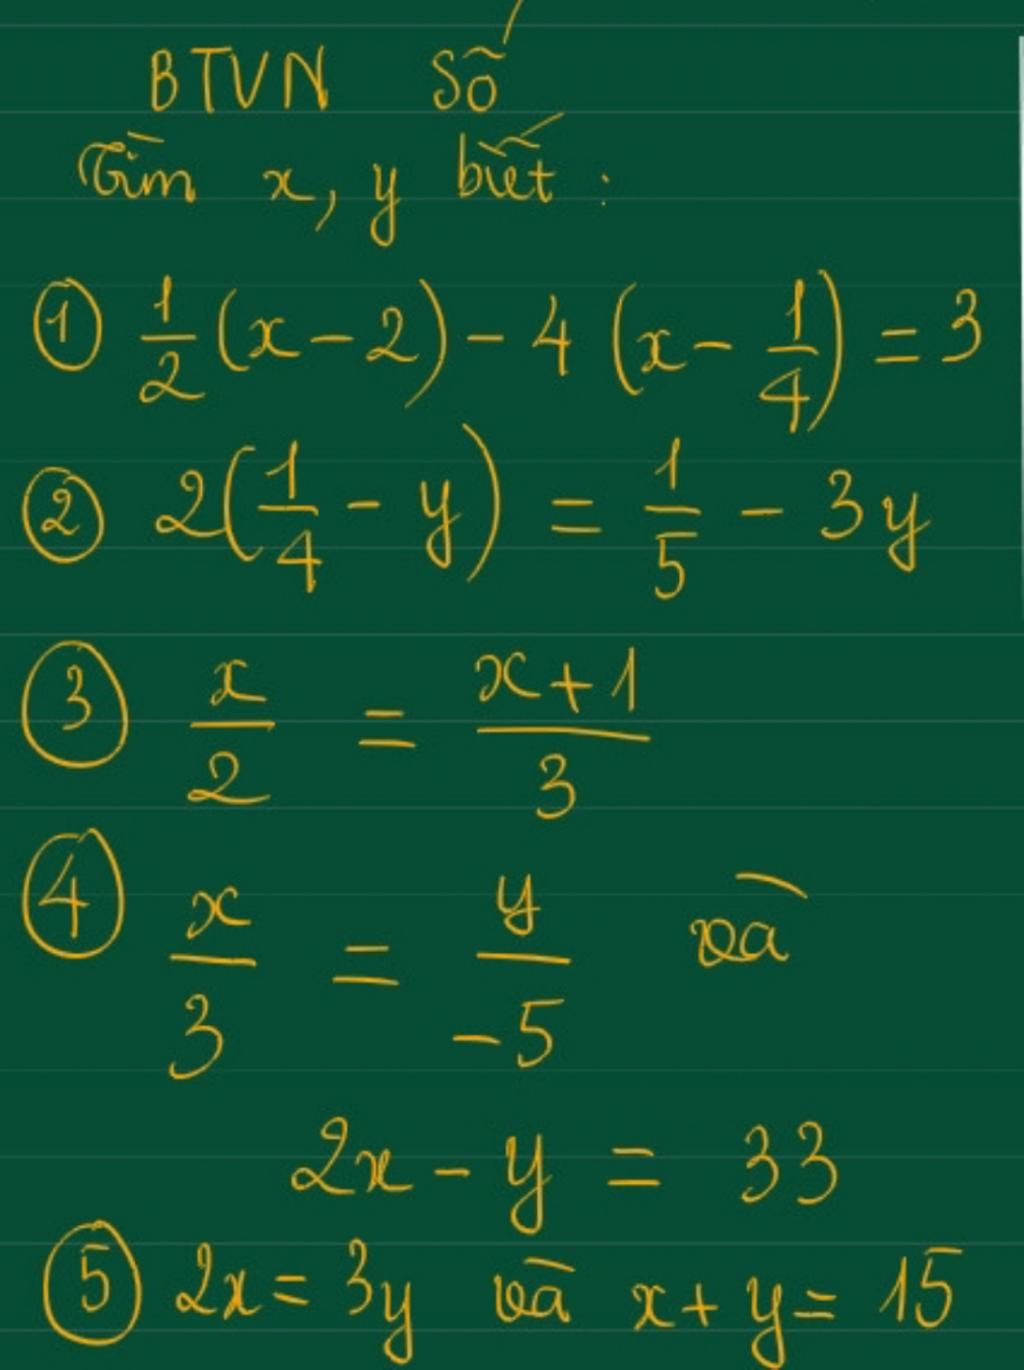 BTVN Số
Tìm x, y biết :
① 1/2 (x - 2) - 4 (x - 1/4) = 3
② 2(1/4 - y) = 1/5 - 3y
③ x/2 = (x+1)/3
④ x/3 = y/-5 và
2x - y = 33
⑤ 2x = 3y và x + y = 15